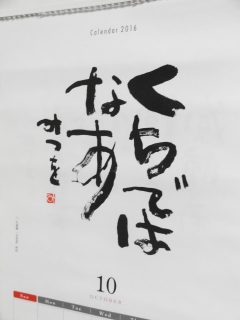 Calendar 2016
くちでは
なあ
みつを
10
OCTOBER
Sun
Mon
Tue
Wed
Thu